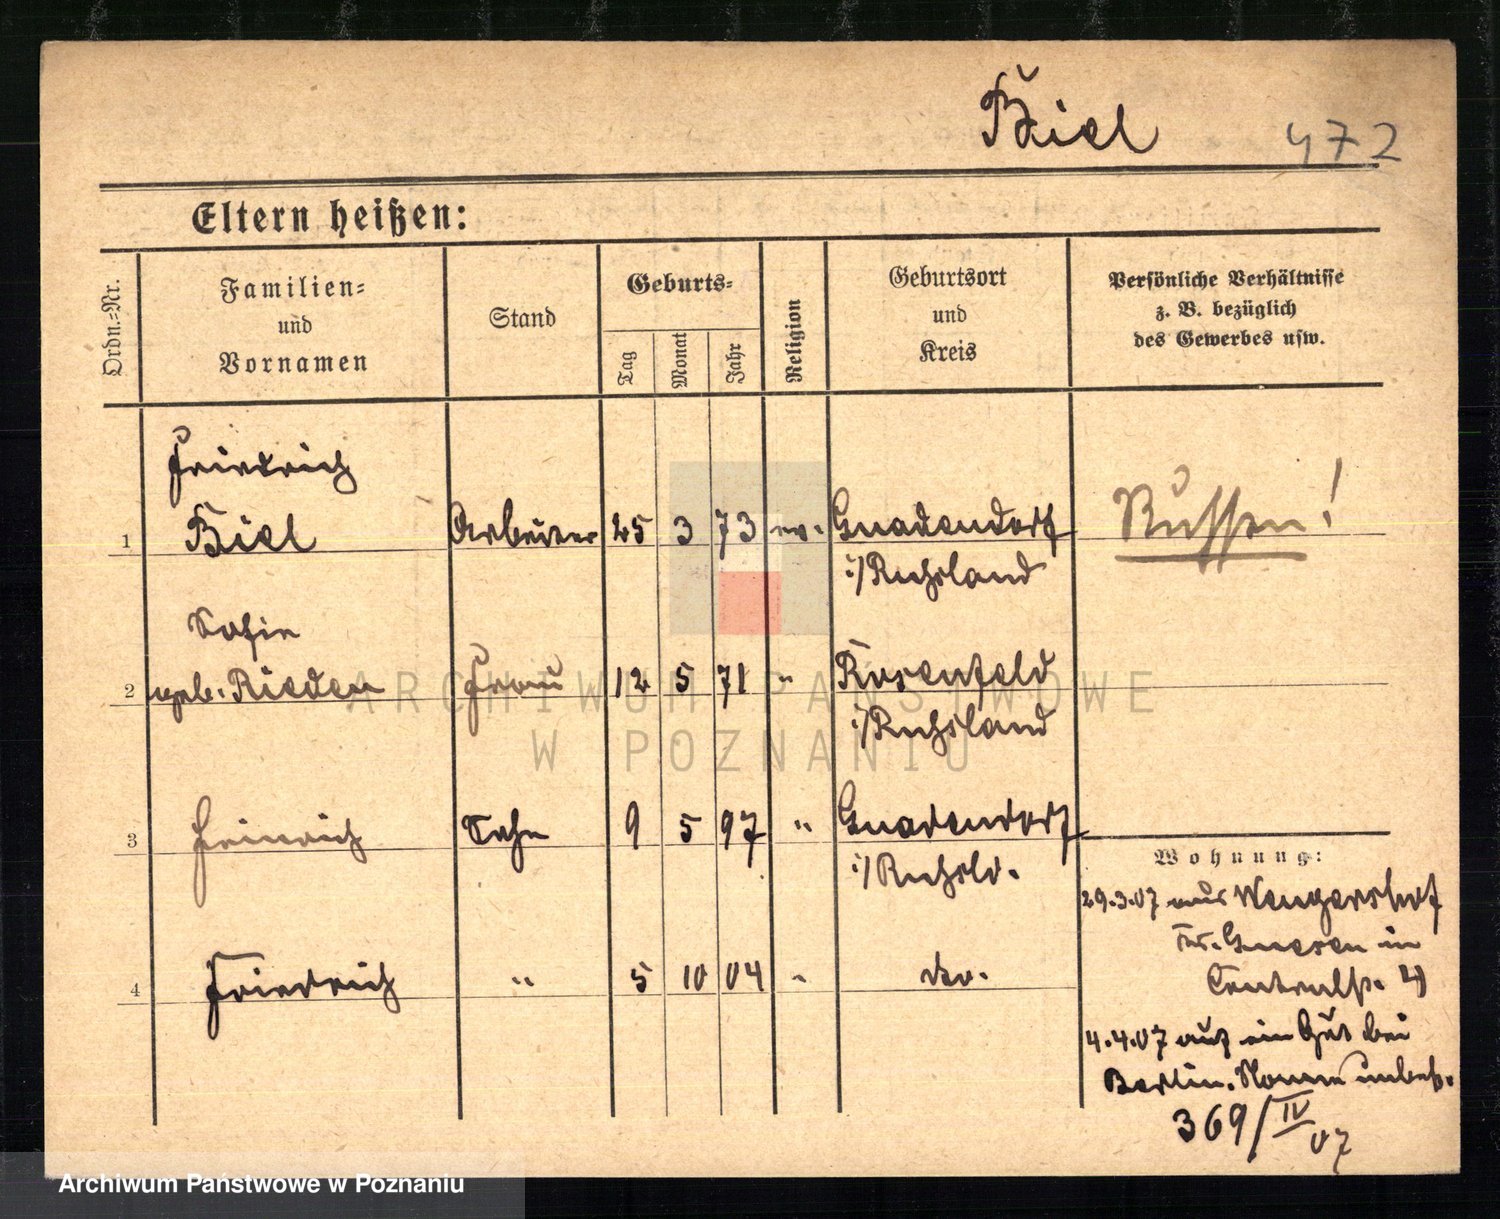 Biel 472
Eltern heißen:
Ordn.-Nr.
Familien-
und
Vornamen
Stand
Geburts-
Tag
Monat
Jahr
Religion
Geburtsort
und
Kreis
Persönliche Verhältnisse
z. B. bezüglich
des Gewerbes usw.
Friedrich
1 Biel Arbeiter 25 3 73 ev. Gnadendorf
i/Rußland
Russen!
Sofie
2 geb. Rieden Frau 12 5 71 " Rosenfeld
i/Rußland
3 Heinrich Sohn 9 5 97 " Gnadendorf
i/Rußld.
4 Friedrich " 5 10 04 " do.
Wohnung:
29.3.07 aus Wengershof
Kr. Gnesen in
Centralh. 4)
4.4.07 auf ein Gut bei
Berlin. Name unbek.
369/IV 07
ARCHIWUM PAŃSTWOWE
W POZNANIU
Archiwum Państwowe w Poznaniu